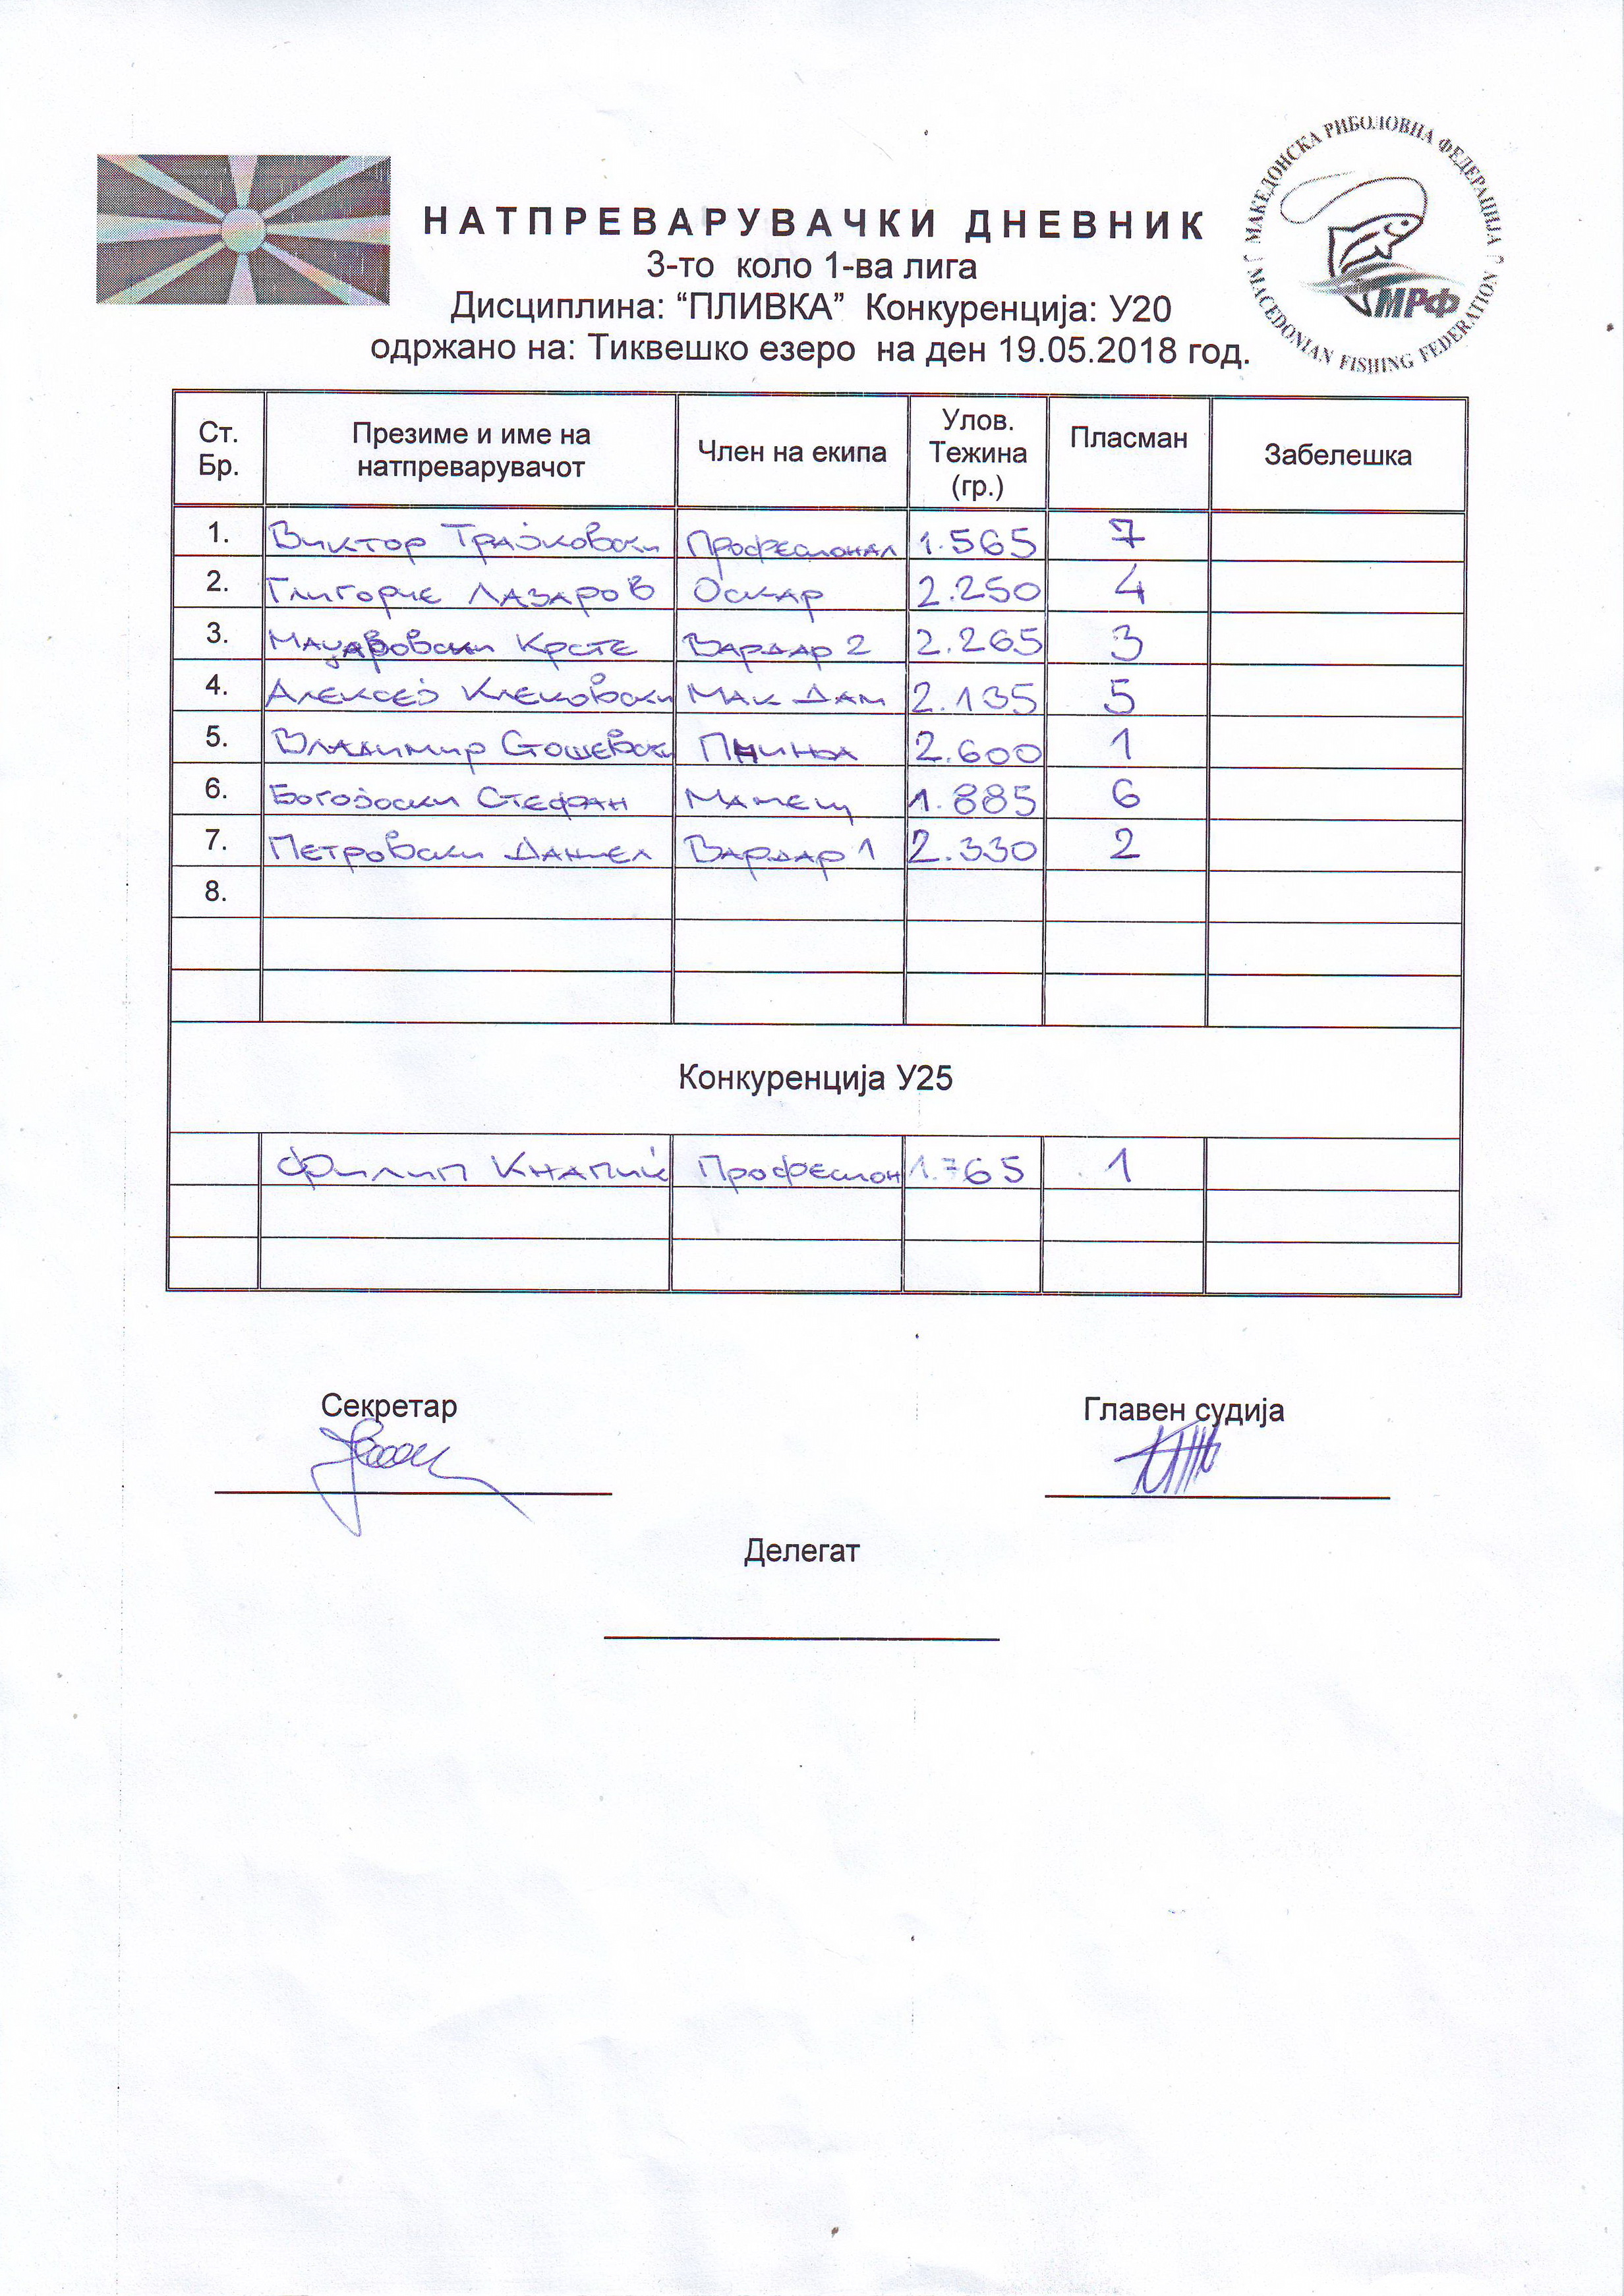 МАКЕДОНСКА РИБОЛОВНА ФЕДЕРАЦИЈА
MACEDONIAN FISHING FEDERATION
МРФ
НАТПРЕВАРУВАЧКИ ДНЕВНИК
3-то коло 1-ва лига
Дисциплина: “ПЛИВКА” Конкуренција: У20
одржано на: Тиквешко езеро на ден 19.05.2018 год.
Ст. Бр. Презиме и име на натпреварувачот Член на екипа Улов. Тежина (гр.) Пласман Забелешка
1. Виктор Трајковски Професионал 1.565 7
2. Глигорче Лазаров Оскар 2.250 4
3. Крсте Вардар 2 2.265 3
4. Алексеј Клековски Мак Дам 2.135 5
5. Владимир Стошевски Пчиња 2.600 1
6. Богојоски Стефан 1.885 6
7. Петровски Даниел Вардар 1 2.330 2
8.
Конкуренција У25
Филип Кнапиќ Професион 1.765 1
Секретар Главен судија
Делегат